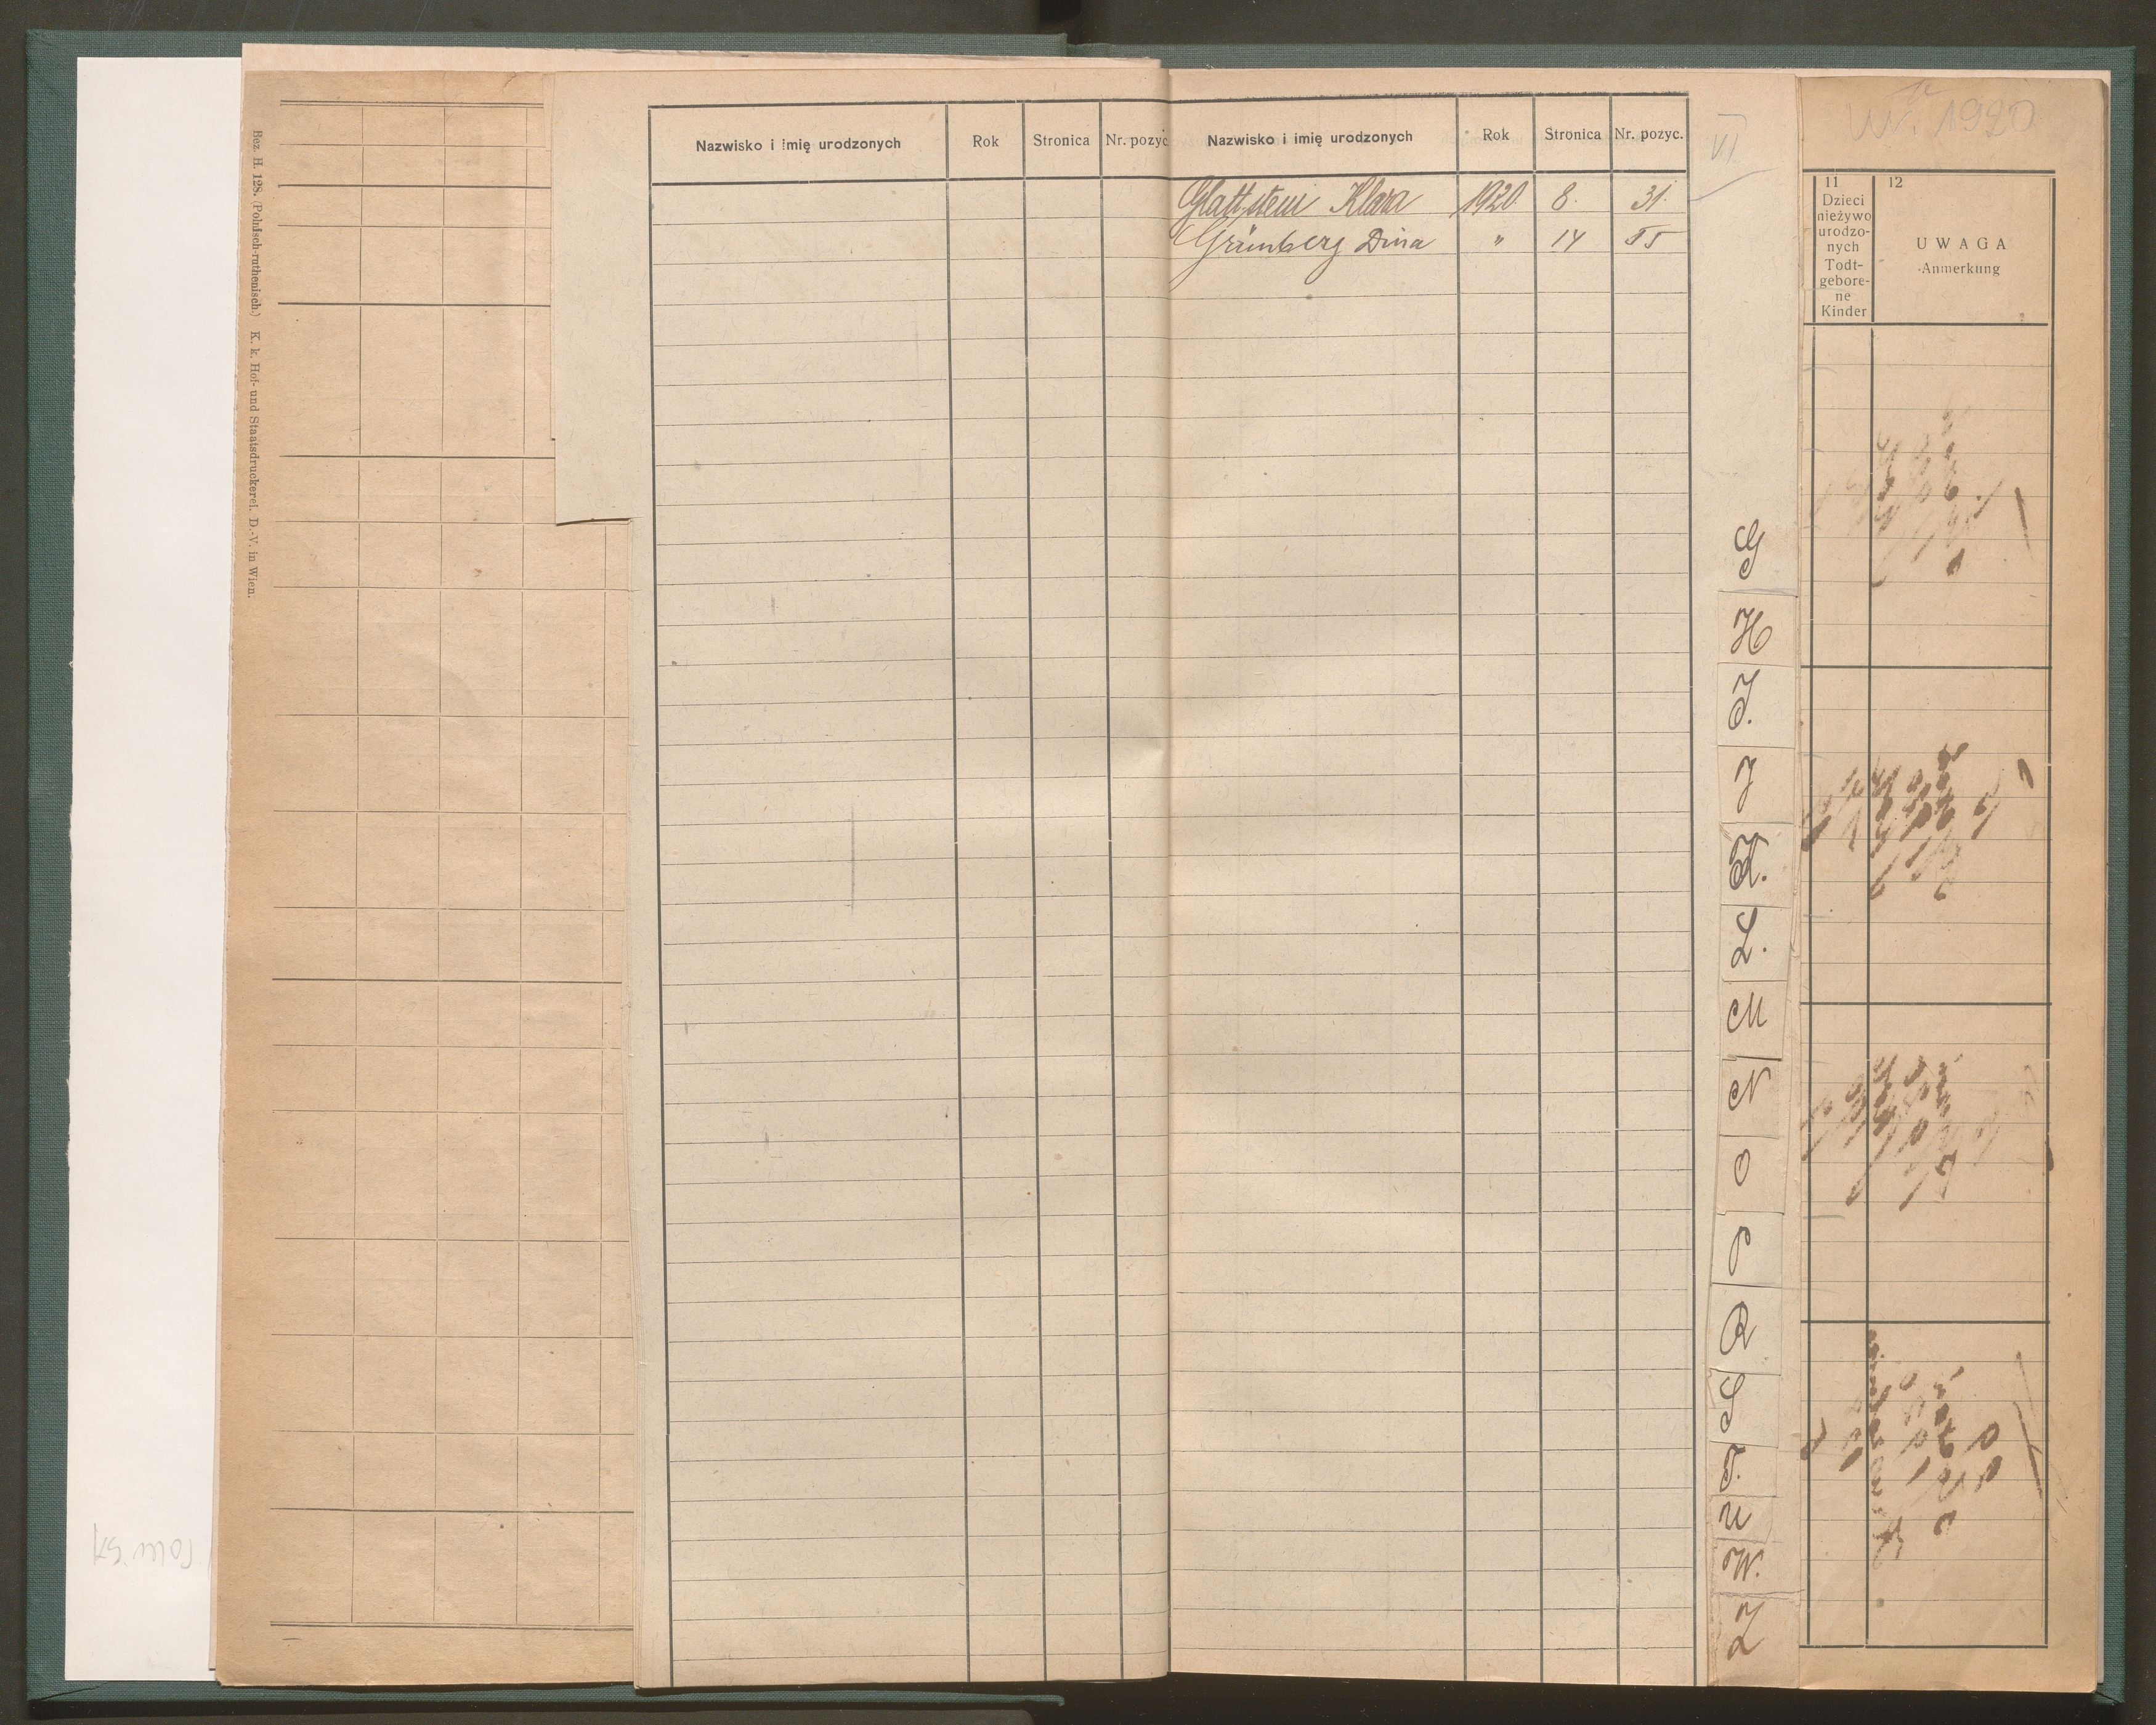 Bez. H. 128. (Polnisch-ruthenisch.) K. k. Hof- und Staatsdruckerei. D.-V. in Wien.
Nazwisko i imię urodzonych Rok Stronica Nr. pozyc
Nazwisko i imię urodzonych Rok Stronica Nr. pozyc.
Glattstein Klara 1920 8. 31.
Grünberg Dina " 14 55
VI
G
H
I.
J
K.
L.
M
N
O
P
R
S
T.
U
W.
Z
1920
11
Dzieci
nieżywo
urodzo-
nych
Todt-
gebore-
ne
Kinder
12
UWAGA
Anmerkung